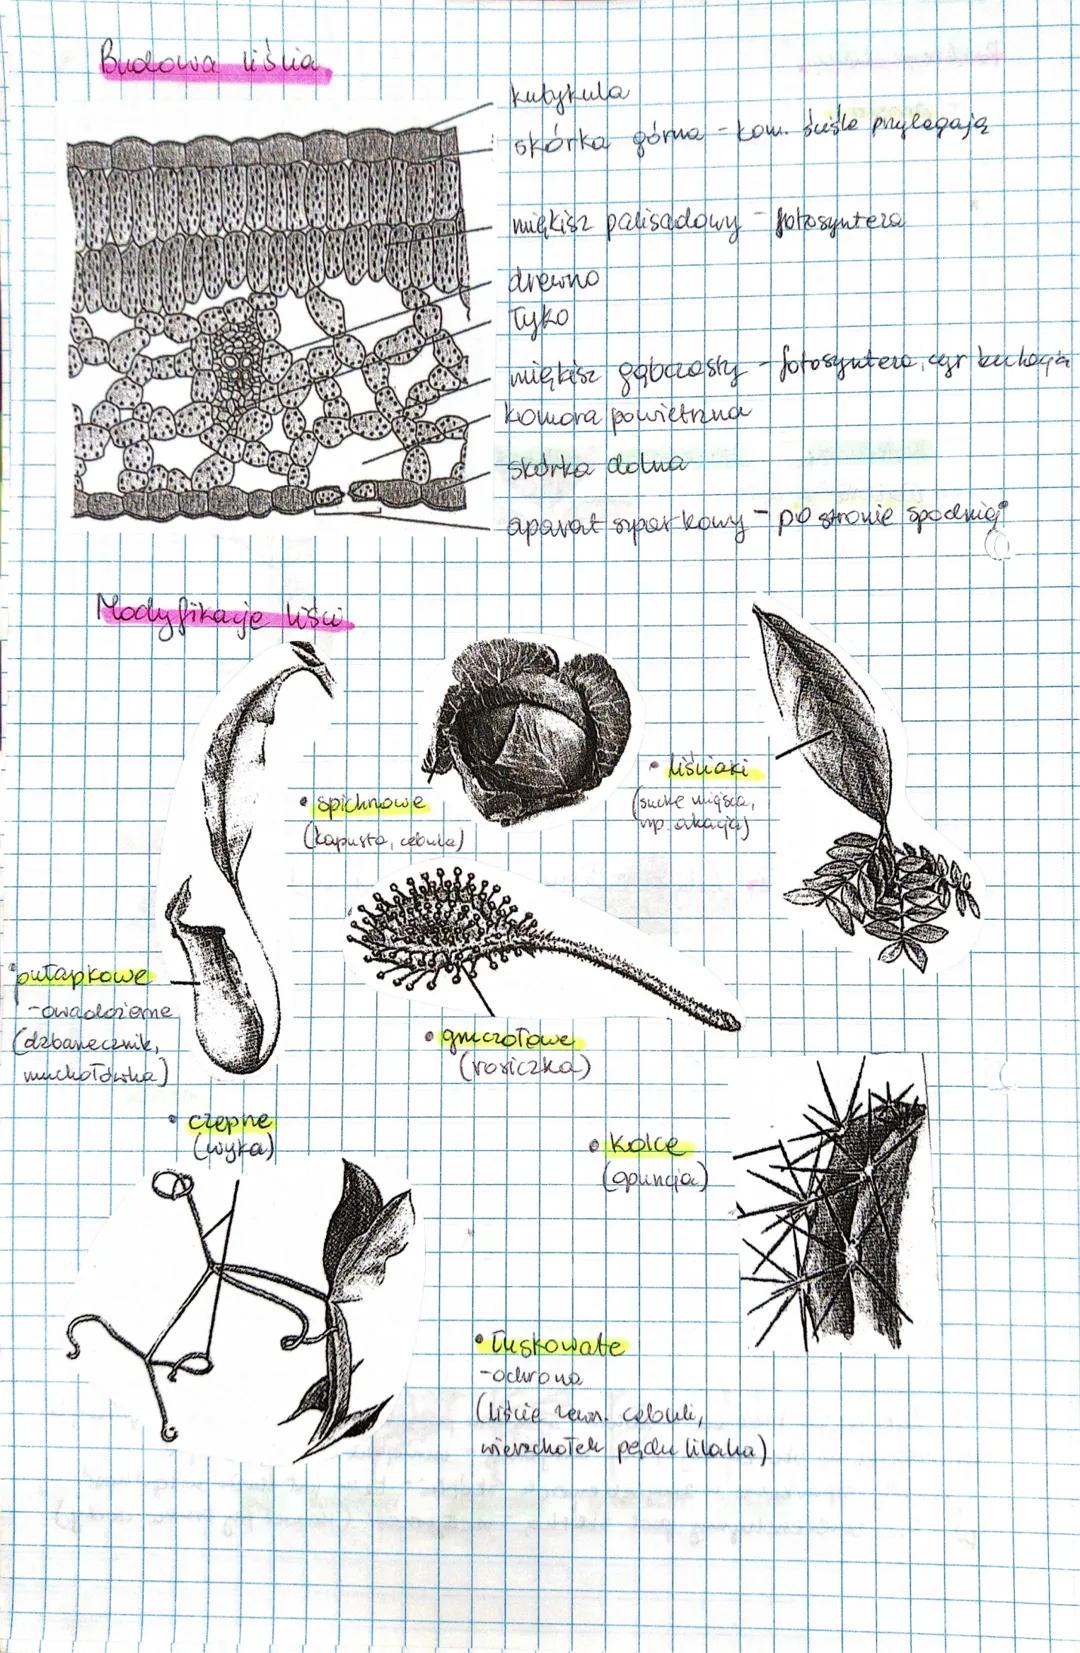 Budowa liścia
kutykula
skórka górna - kom. ściśle przylegają
miękisz palisadowy - fotosynteza
drewno
łyko
miękisz gąbczasty - fotosynteza, cyrkulacja
komora powietrzna
skórka dolna
aparat szparkowy - po stronie spodniej
Modyfikacje liści
• spichrzowe
(kapusta, cebula)
• liściaki
(suche miejsca,
np. akacja)
pułapkowe
- owadożerne
(dzbanecznik,
muchołówka)
• gruczołowe
(rosiczka)
• czepne
(wyka)
• kolce
(opuncja)
• łuskowate
- ochrona
(liście zewn. cebuli,
wierzchołek pędu lilaka)